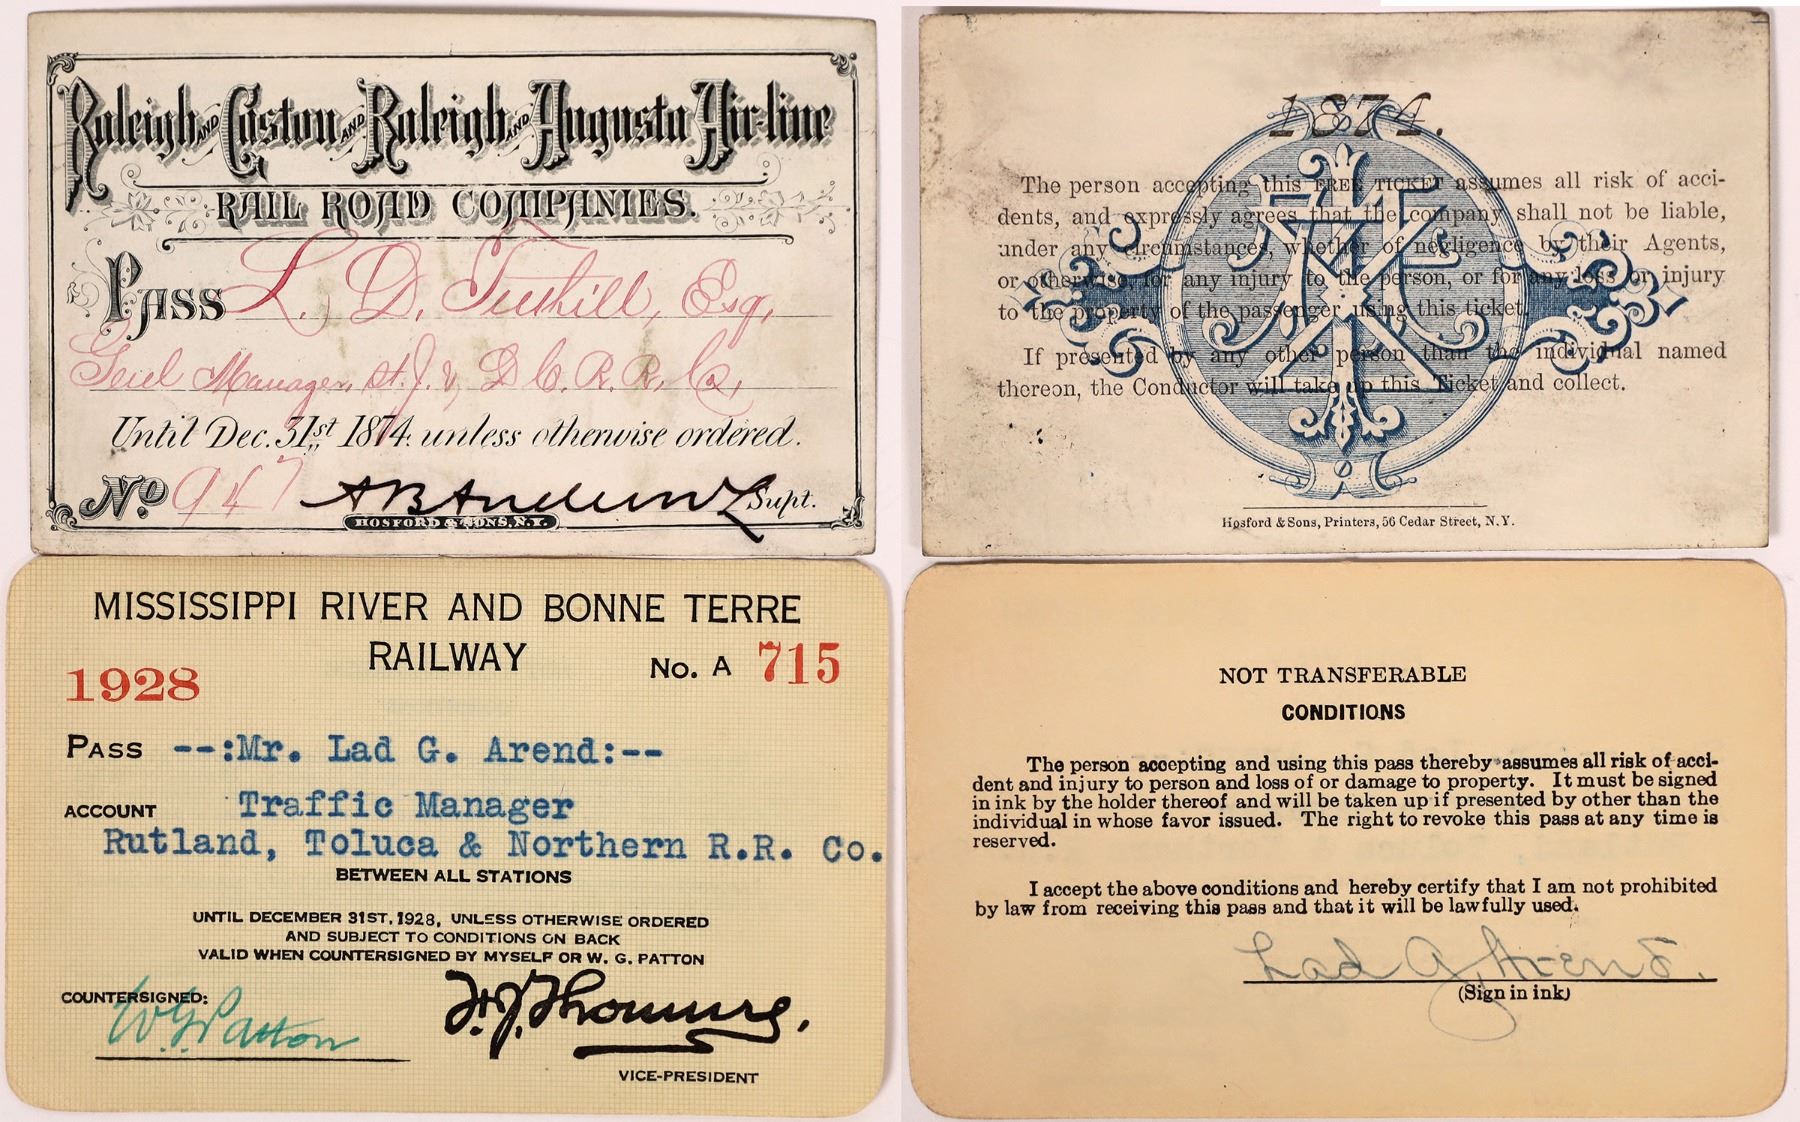 Raleigh AND Gaston AND Raleigh AND Augusta Air-line
RAIL ROAD COMPANIES.
PASS L. D. Tuthill, Esq,
Genl Manager, St. J. & D. C. R. R. Co,
Until Dec. 31st 1874 unless otherwise ordered.
No 947 A B Andrews Supt.
HOSFORD & SONS, N.Y.
1874.
The person accepting this FREE TICKET assumes all risk of acci-
dents, and expressly agrees that the company shall not be liable,
under any circumstances, whether of negligence by their Agents,
or otherwise, for any injury to the person, or for any loss or injury
to the property of the passenger using this ticket.
If presented by any other person than the individual named
thereon, the Conductor will take up this Ticket and collect.
Hosford & Sons, Printers, 56 Cedar Street, N.Y.
MISSISSIPPI RIVER AND BONNE TERRE
RAILWAY
1928
No. A 715
PASS --:Mr. Lad G. Arend:--
ACCOUNT Traffic Manager
Rutland, Toluca & Northern R.R. Co.
BETWEEN ALL STATIONS
UNTIL DECEMBER 31ST, 1928, UNLESS OTHERWISE ORDERED
AND SUBJECT TO CONDITIONS ON BACK
VALID WHEN COUNTERSIGNED BY MYSELF OR W. G. PATTON
COUNTERSIGNED:
W G Patton
VICE-PRESIDENT
NOT TRANSFERABLE
CONDITIONS
The person accepting and using this pass thereby assumes all risk of acci-
dent and injury to person and loss of or damage to property. It must be signed
in ink by the holder thereof and will be taken up if presented by other than the
individual in whose favor issued. The right to revoke this pass at any time is
reserved.
I accept the above conditions and hereby certify that I am not prohibited
by law from receiving this pass and that it will be lawfully used.
Lad G. Arend.
(Sign in ink)